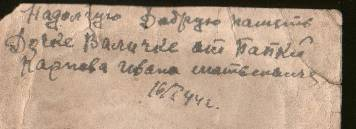 На долгую Добрую память
Дочке Валичке от Папки
Карпова Ивана Матвеевиче
16/I 44 г.